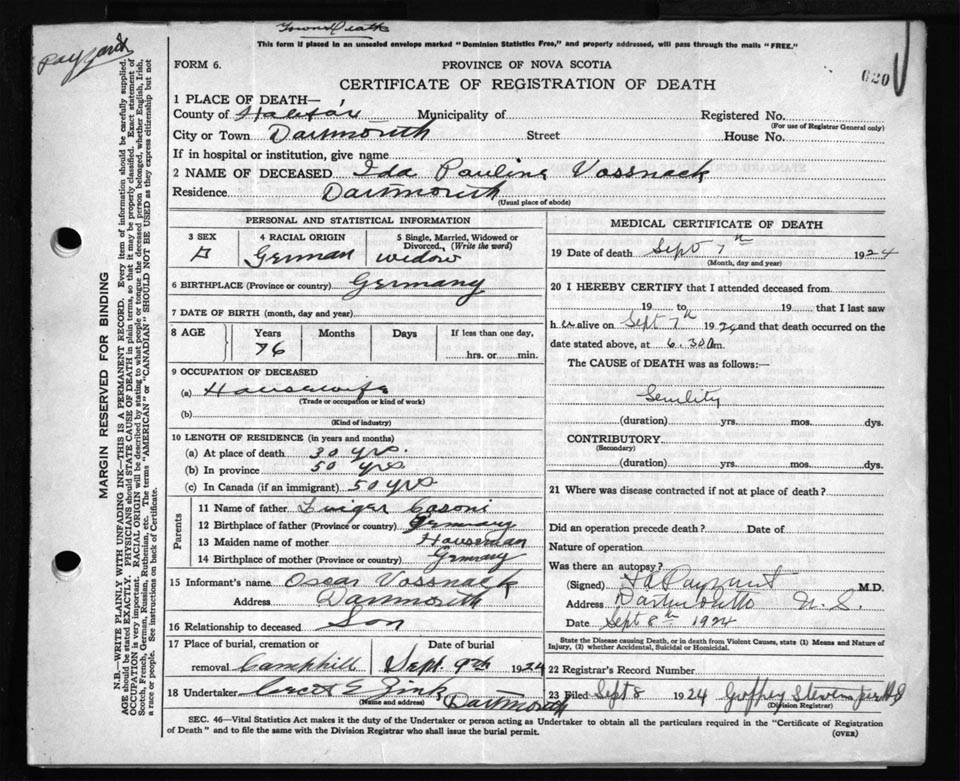 Town Death
This form if placed in an unsealed envelope marked "Dominion Statistics Free," and properly addressed, will pass through the mails "FREE."
FORM 6.
PROVINCE OF NOVA SCOTIA
620
CERTIFICATE OF REGISTRATION OF DEATH
1 PLACE OF DEATH—
County of Halifax Municipality of Registered No.
(For use of Registrar General only)
City or Town Dartmouth Street House No.
If in hospital or institution, give name
2 NAME OF DECEASED Ida Pauline Vossnack
Residence Dartmouth
(Usual place of abode)
PERSONAL AND STATISTICAL INFORMATION
3 SEX 4 RACIAL ORIGIN 5 Single, Married, Widowed or Divorced, (Write the word)
F German widow
6 BIRTHPLACE (Province or country) Germany
7 DATE OF BIRTH (month, day and year)
8 AGE Years Months Days If less than one day,
76 hrs. or min.
9 OCCUPATION OF DECEASED
(a) Housewife
(Trade or occupation or kind of work)
(b)
(Kind of industry)
10 LENGTH OF RESIDENCE (in years and months)
(a) At place of death 30 yrs.
(b) In province 50 yrs
(c) In Canada (if an immigrant) 50 yrs
Parents
11 Name of father Casoni
12 Birthplace of father (Province or country) Germany
13 Maiden name of mother Hauseman
14 Birthplace of mother (Province or country) Germany
15 Informant's name Oscar Vossnack
Address Dartmouth
16 Relationship to deceased Son
17 Place of burial, cremation or Date of burial
removal Camphill Sept. 9th 1924
18 Undertaker Zink
(Name and address) Dartmouth
MEDICAL CERTIFICATE OF DEATH
19 Date of death Sept 7th 1924
(Month, day and year)
20 I HEREBY CERTIFY that I attended deceased from
19 to 19 that I last saw
h er alive on Sept 7th 1924 and that death occurred on
date stated above, at 6.30 a m.
The CAUSE of DEATH was as follows:—
Senility
(duration) yrs. mos. dys.
CONTRIBUTORY
(Secondary)
(duration) yrs. mos. dys.
21 Where was disease contracted if not at place of death?
Did an operation precede death? Date of
Nature of operation
Was there an autopsy?
(Signed) Payzant M.D.
Address Dartmouth N. S.
Date Sept 8th 1924
State the Disease causing Death, or in death from Violent Causes, state (1) Means and Nature of
Injury, (2) whether Accidental, Suicidal or Homicidal.
22 Registrar's Record Number
23 Filed Sept 8 1924 Stevens
(Division Registrar)
SEC. 46—Vital Statistics Act makes it the duty of the Undertaker or person acting as Undertaker to obtain all the particulars required in the "Certificate of Registration
of Death" and to file the same with the Division Registrar who shall issue the burial permit.
(OVER)
Payzant
MARGIN RESERVED FOR BINDING
N.B.—WRITE PLAINLY WITH UNFADING INK—THIS IS A PERMANENT RECORD. Every item of information should be carefully supplied.
AGE should be stated EXACTLY. PHYSICIANS should STATE CAUSE OF DEATH in plain terms, so that it may be properly classified. Exact statement of
OCCUPATION is very important. RACIAL ORIGIN will be described by stating to what people or tongue the deceased person belonged, whether English, Irish,
Scotch, French, German, Russian, Ruthenian, etc. The terms "AMERICAN" or "CANADIAN" SHOULD NOT BE USED as they express citizenship but not
a race or people. See instructions on back of Certificate.